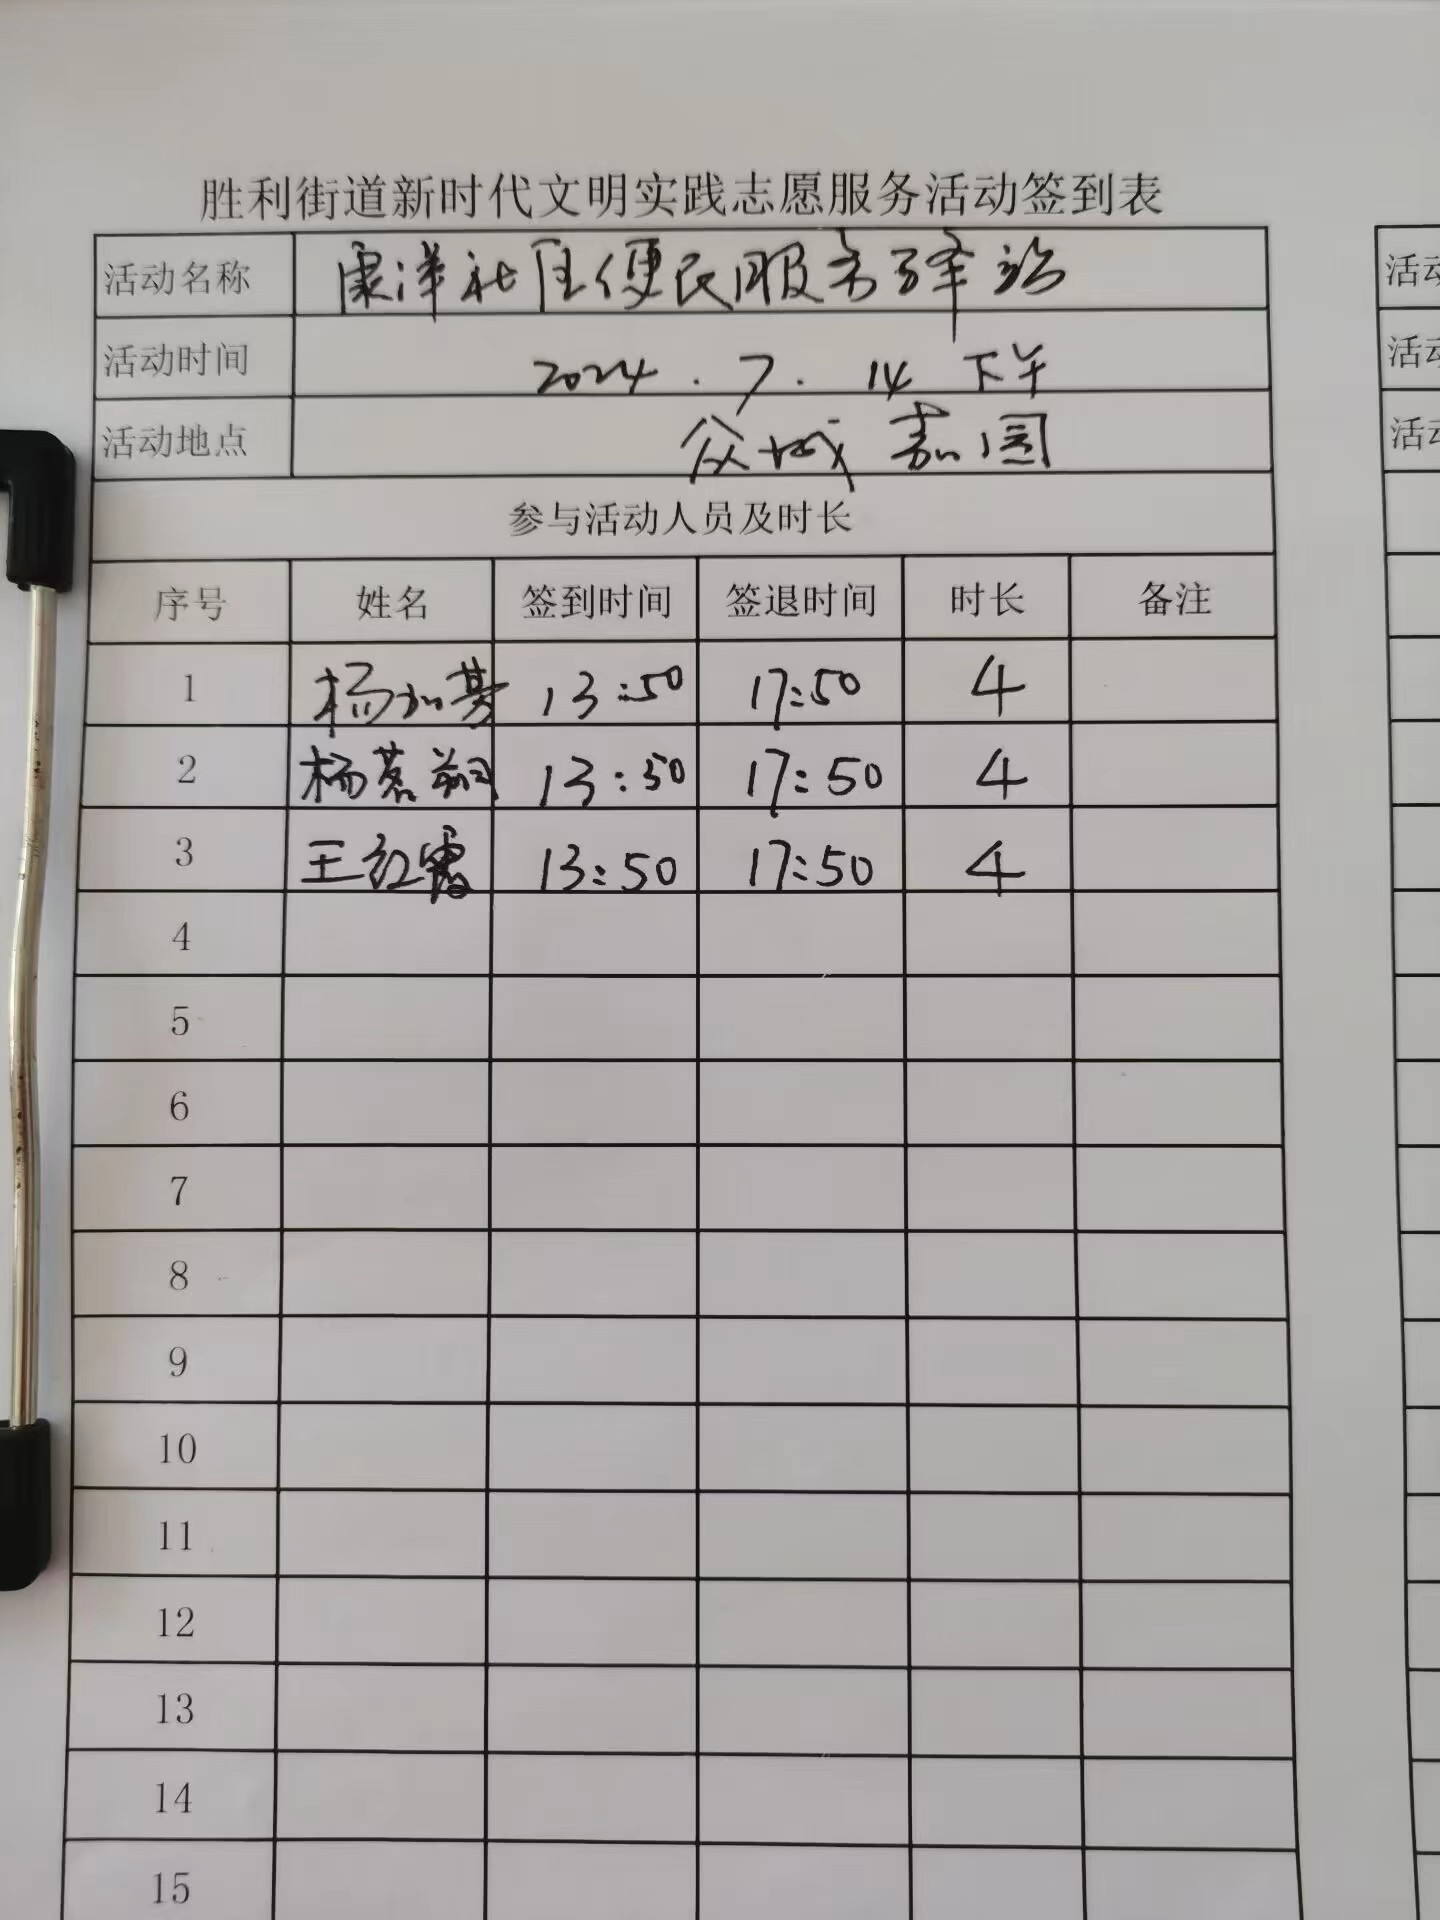 胜利街道新时代文明实践志愿服务活动签到表
活动名称 康洋社区便民服务驿站
活动时间 2024.7.14 下午
活动地点 众城嘉园
参与活动人员及时长
序号 姓名 签到时间 签退时间 时长 备注
1 杨 13:50 17:50 4
2 杨茗翔 13:50 17:50 4
3 王红霞 13:50 17:50 4
4
5
6
7
8
9
10
11
12
13
14
15
活动
活动
活动